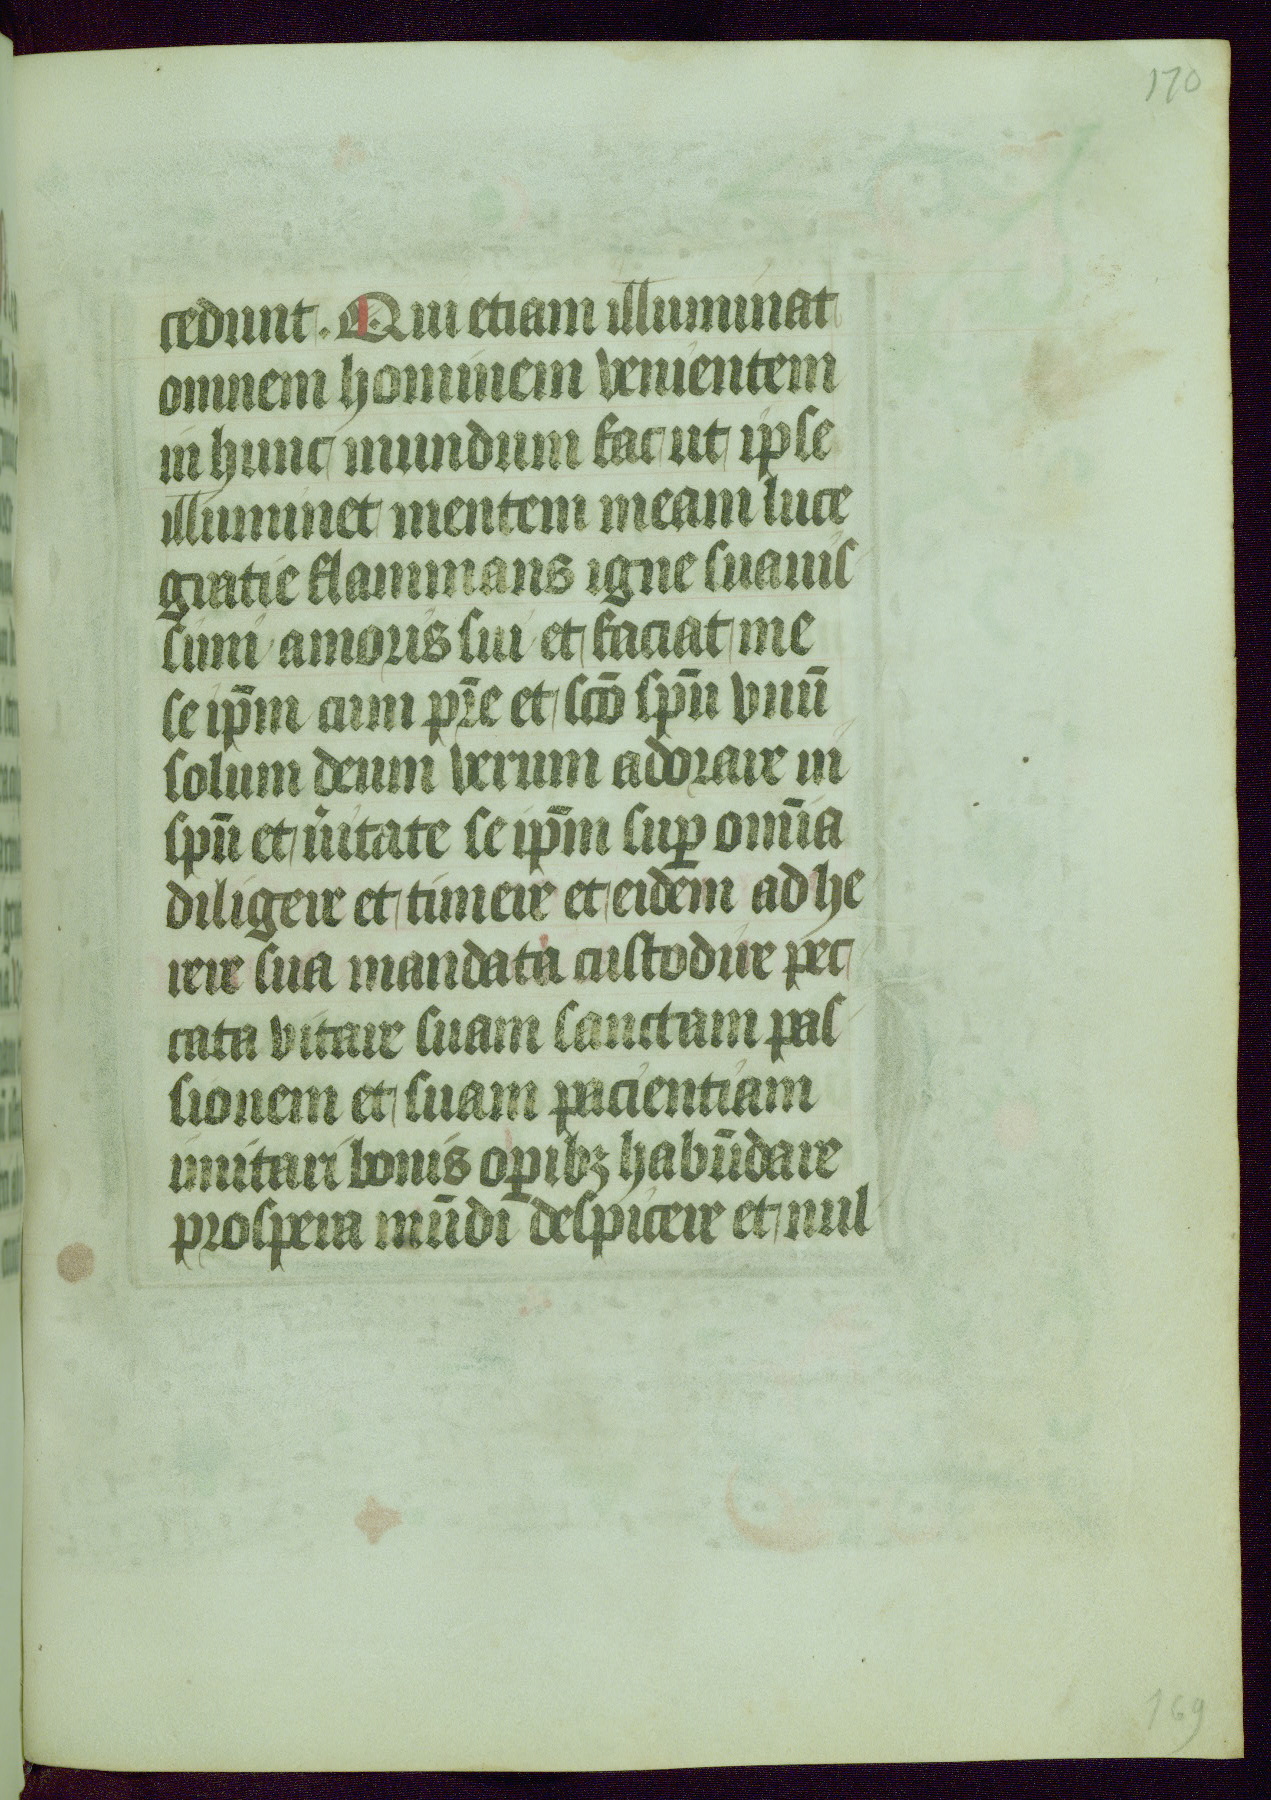 170
cedunt. Qui etiam illuminat
omnem hominem venientem
in hunc mundum fac ut ipse
illuminet mentem meam luce
gratie flammans igne suauis
simi amoris sui et faciat me
se ip̄m cum pr̄e et sc̄o sp̄u vnū
solum deum verum adorare in
sp̄u et u̇itate se ip̄m suꝑ om̄ia
diligere et timere et eidem adhe
rere sua mandata custodire pec
cata vitare suam sanctam pas
sionem et suam pacientiam
imitari bonis oꝑibꝫ habūdare
prospera mūdi despicere et nul
169